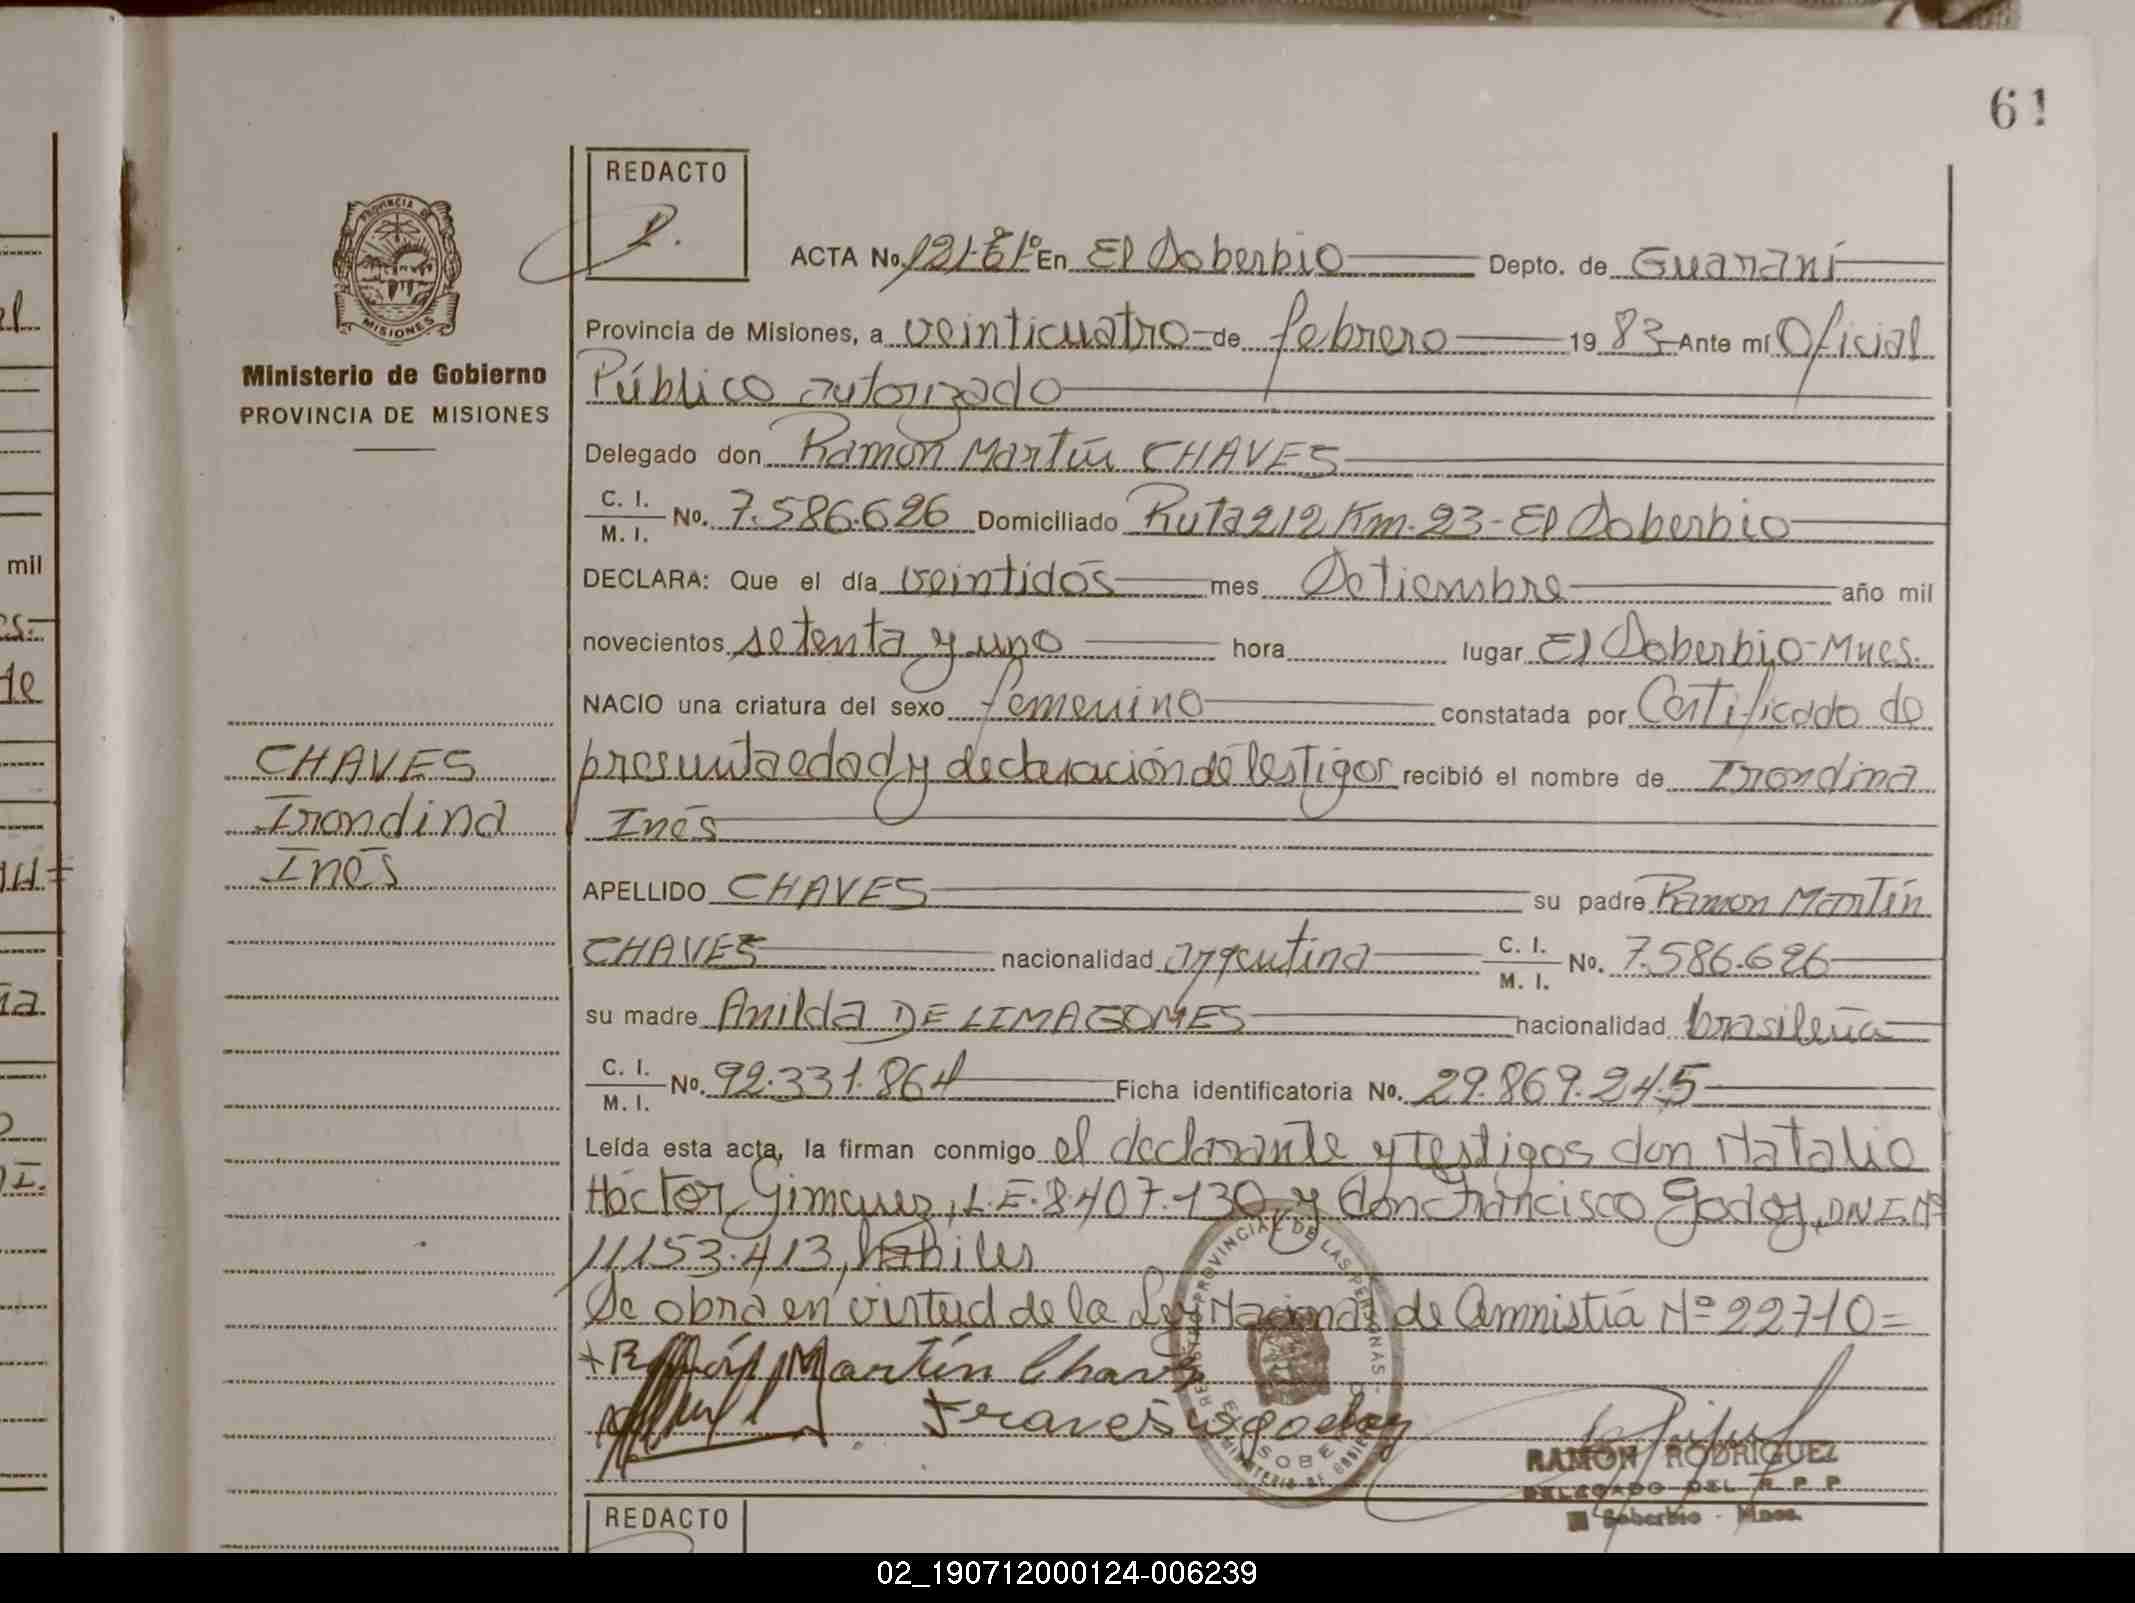 61
REDACTO
ACTA No. 121-61º En El Soberbio Depto. de Guaraní
Provincia de Misiones, a veinticuatro de febrero 1983 Ante mí Oficial
Público autorizado
Ministerio de Gobierno
PROVINCIA DE MISIONES
Delegado don Ramón Martín CHAVES
C. I. / M. I. No. 7.586.626 Domiciliado Ruta 212 Km. 23 - El Soberbio
DECLARA: Que el día veintidós mes Setiembre año mil
novecientos setenta y uno hora lugar El Soberbio - Mnes.
NACIO una criatura del sexo femenino constatada por Certificado de
presunta edad y declaración de testigos recibió el nombre de Irondina
Inés
CHAVES
Irondina
Inés
APELLIDO CHAVES su padre Ramon Martín
CHAVES nacionalidad argentina C. I. / M. I. No. 7.586.626
su madre Anilda DE LIMA GOMES nacionalidad brasileña
C. I. / M. I. No. 92.331.864 Ficha identificatoria No. 29.869.245
Leída esta acta, la firman conmigo el declarante y testigos don Natalio
Héctor Gimenez, L.E. 8.407.130 y don Francisco Godoy, DNI. Nº
11.153.413, hábiles
Se obra en virtud de la Ley Nacional de Amnistía Nº 22710=
Martín Chaves
Godoy
REGISTRO PROVINCIAL DE LAS PERSONAS
EL SOBERBIO
MINISTERIO DE GOBIERNO
RAMON RODRIGUEZ
DELEGADO DEL R P P
El Soberbio - Mnes.
REDACTO
MISIONES
PROVINCIA DE
mil
02_190712000124-006239